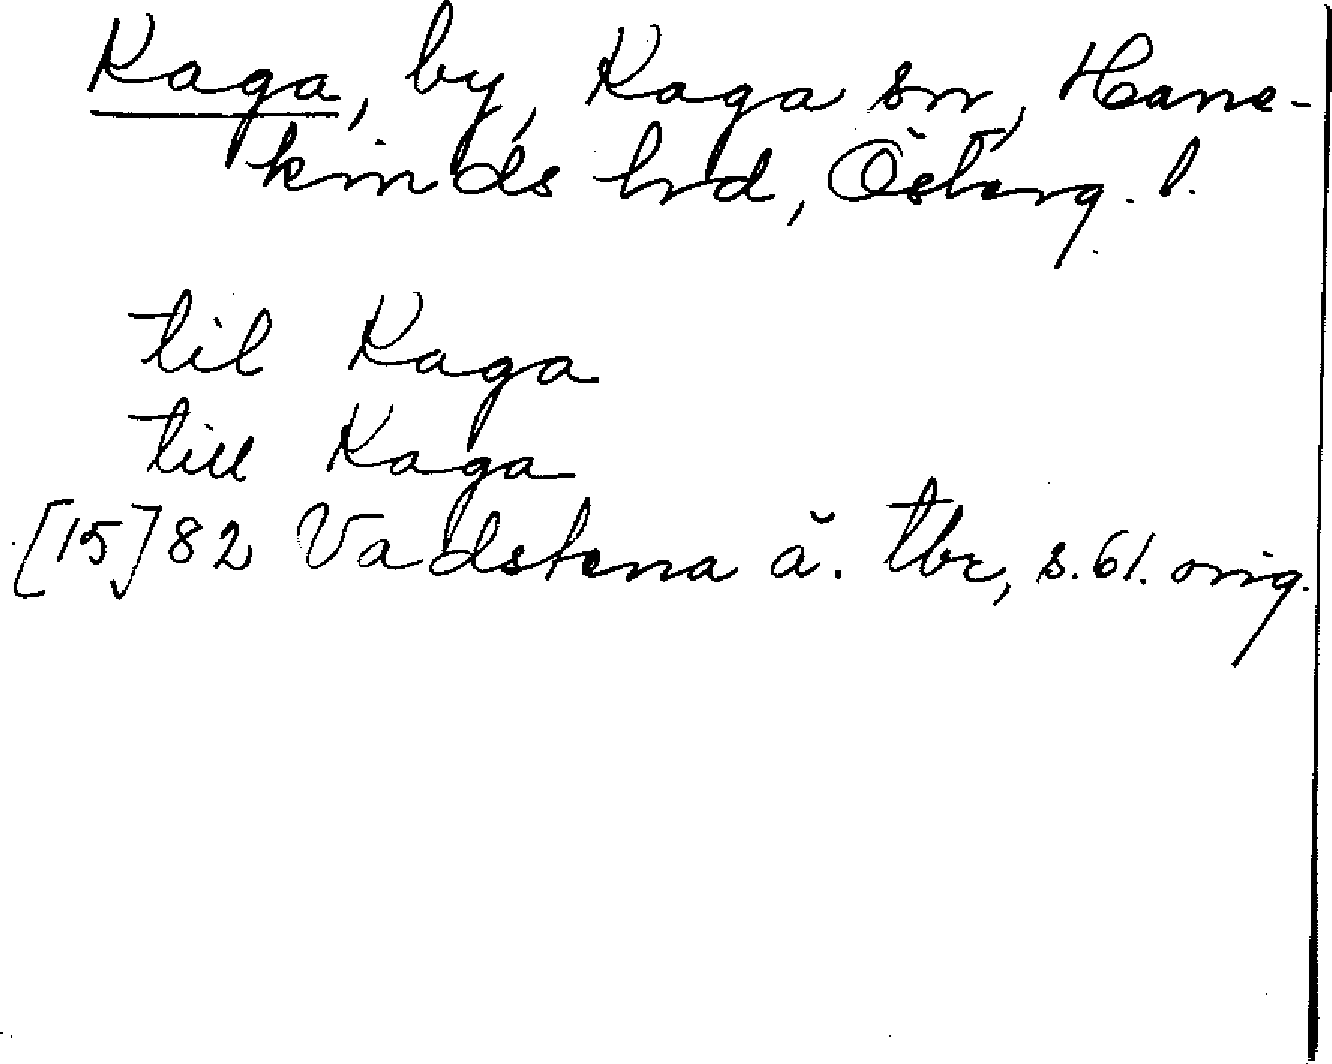 Kaga, by, Kaga sn, Hane-
kinds hrd, Österg. l.
til Kaga
till Kaga
[15]82 Vadstena ä. tbr, s. 61. orig.